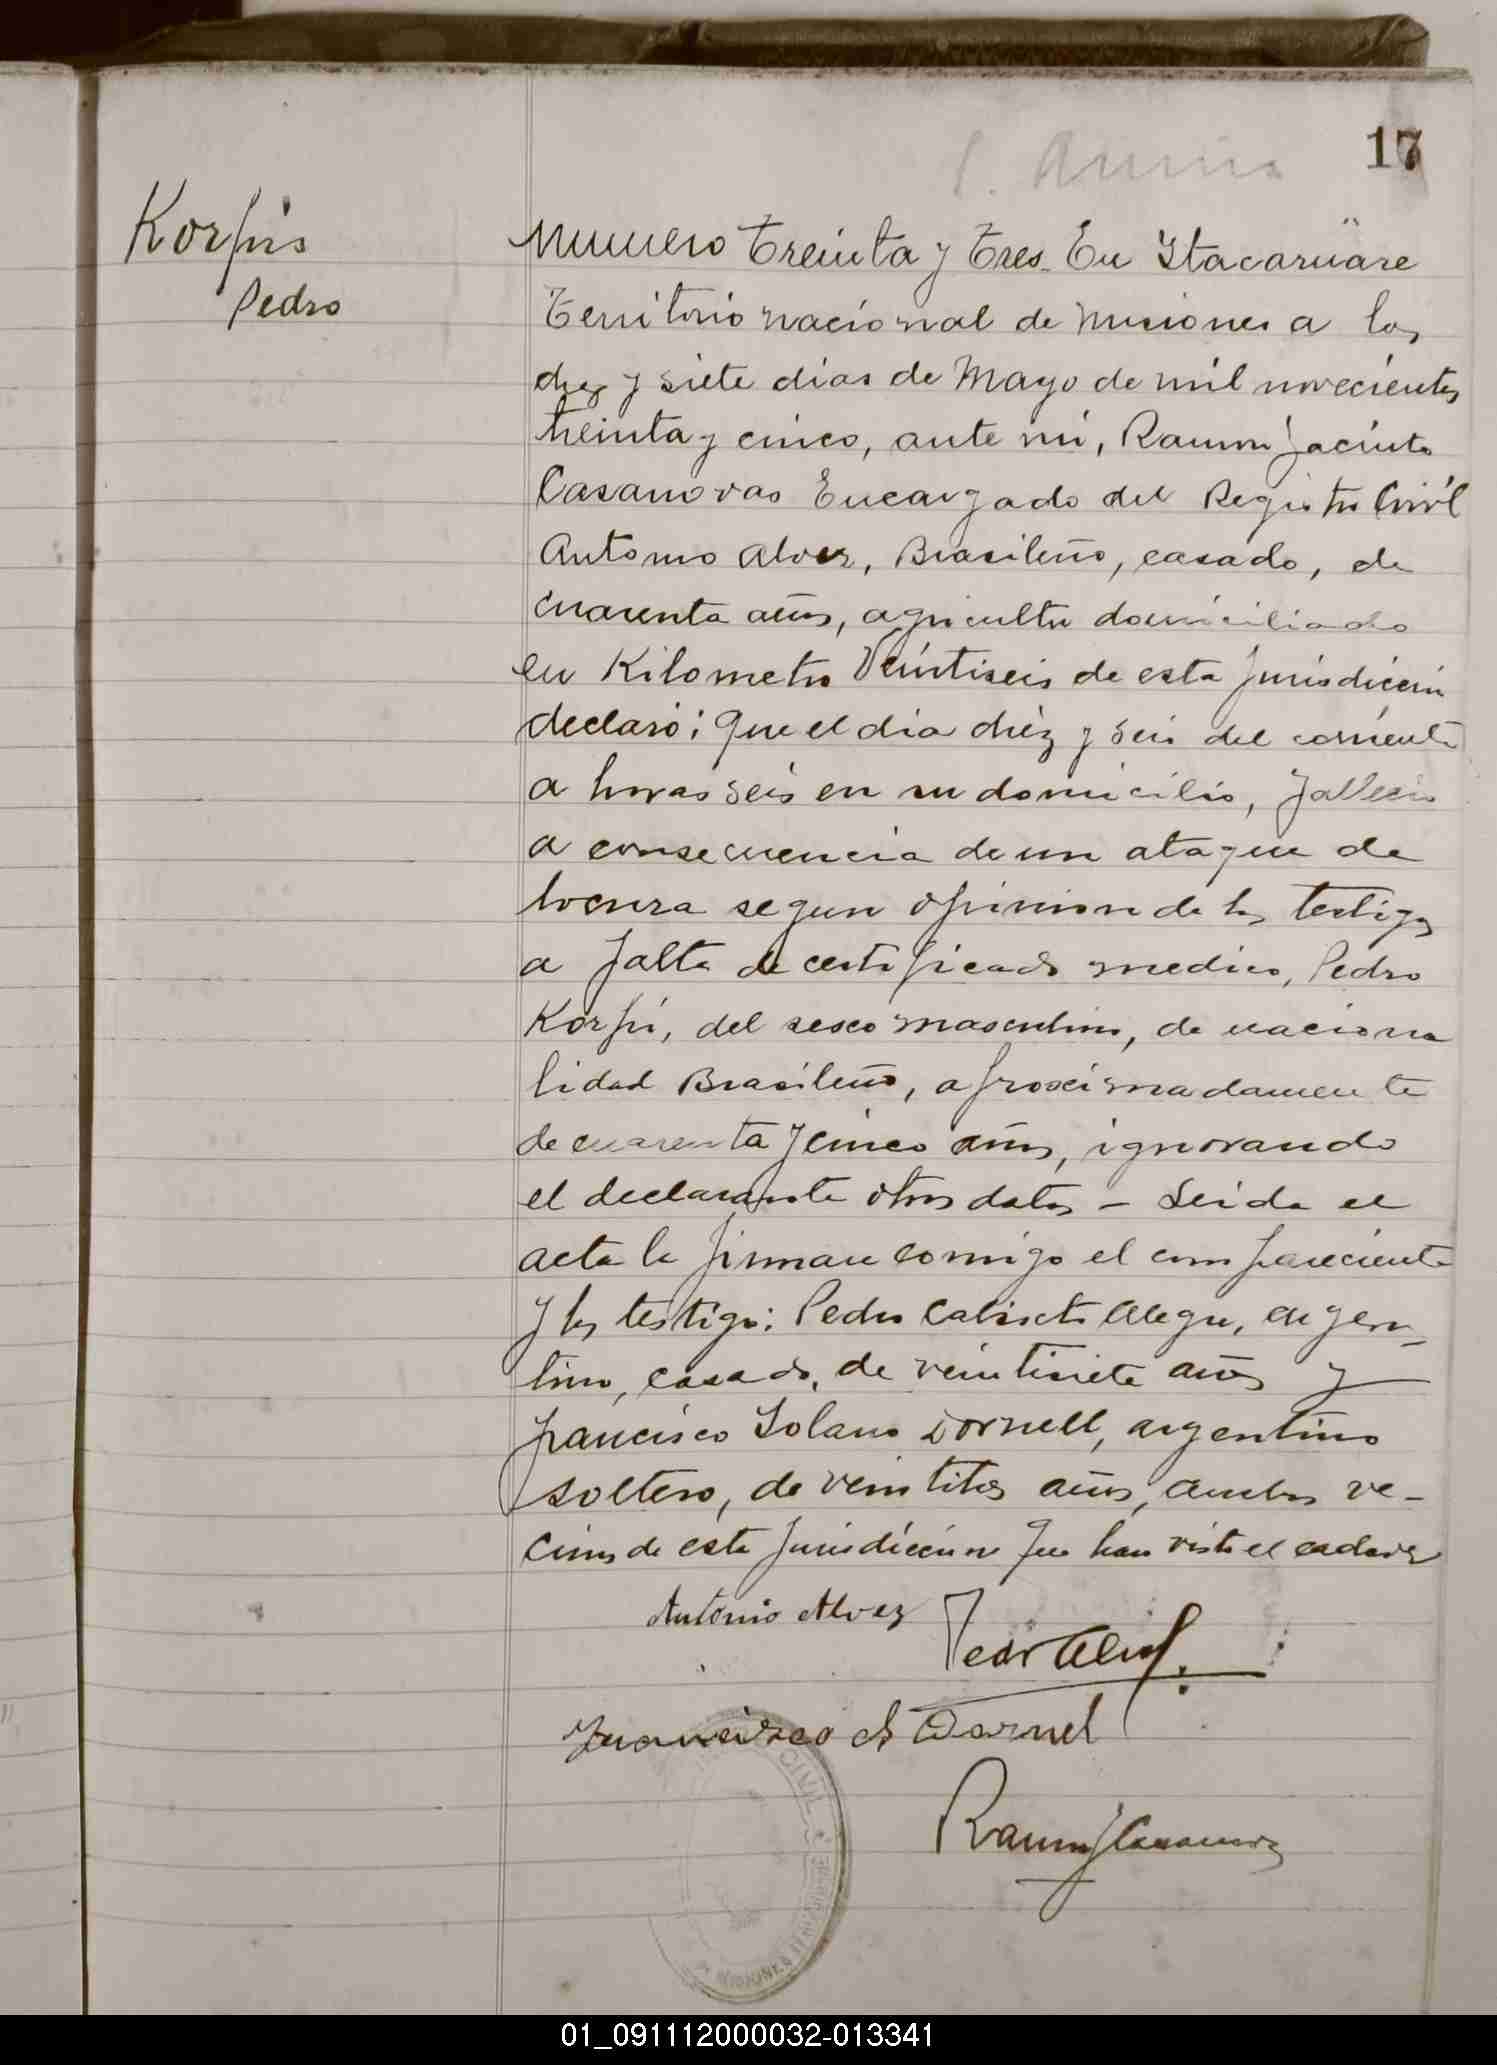 17
Korpis
Pedro
Numero Treinta y Tres. En Itacaruare
Territorio nacional de Misiones a los
diez y siete dias de Mayo de mil novecientos
treinta y cinco, ante mi, Ramon Jacinto
Casanovas Encargado del Registro Civil
Antonio Alvez, Brasileño, casado, de
cuarenta años, agricultor domiciliado
en Kilometro Veintiseis de esta jurisdiccion
declaró: Que el dia diez y seis del corriente
a horas seis en su domicilio, fallecio
a consecuencia de un ataque de
locura segun opinion de los testigos
a falta de certificado medico, Pedro
Korpi, del sexo masculino, de naciona
lidad Brasileño, aproximadamente
de cuarenta y cinco años, ignorando
el declarante otros datos - Leida el
acta la firman comigo el compareciente
y los testigos: Pedro Calisto Alegre, argen_
tino, casado, de veintisiete años y
Francisco Solano Dornell, argentino
soltero, de veintitres años, ambos ve-
cinos de esta jurisdiccion que han visto el cadaver
Antonio Alvez
Francisco S Dornel
Ramon J Casanovas
CIVIL
MISIONES
01_091112000032-013341